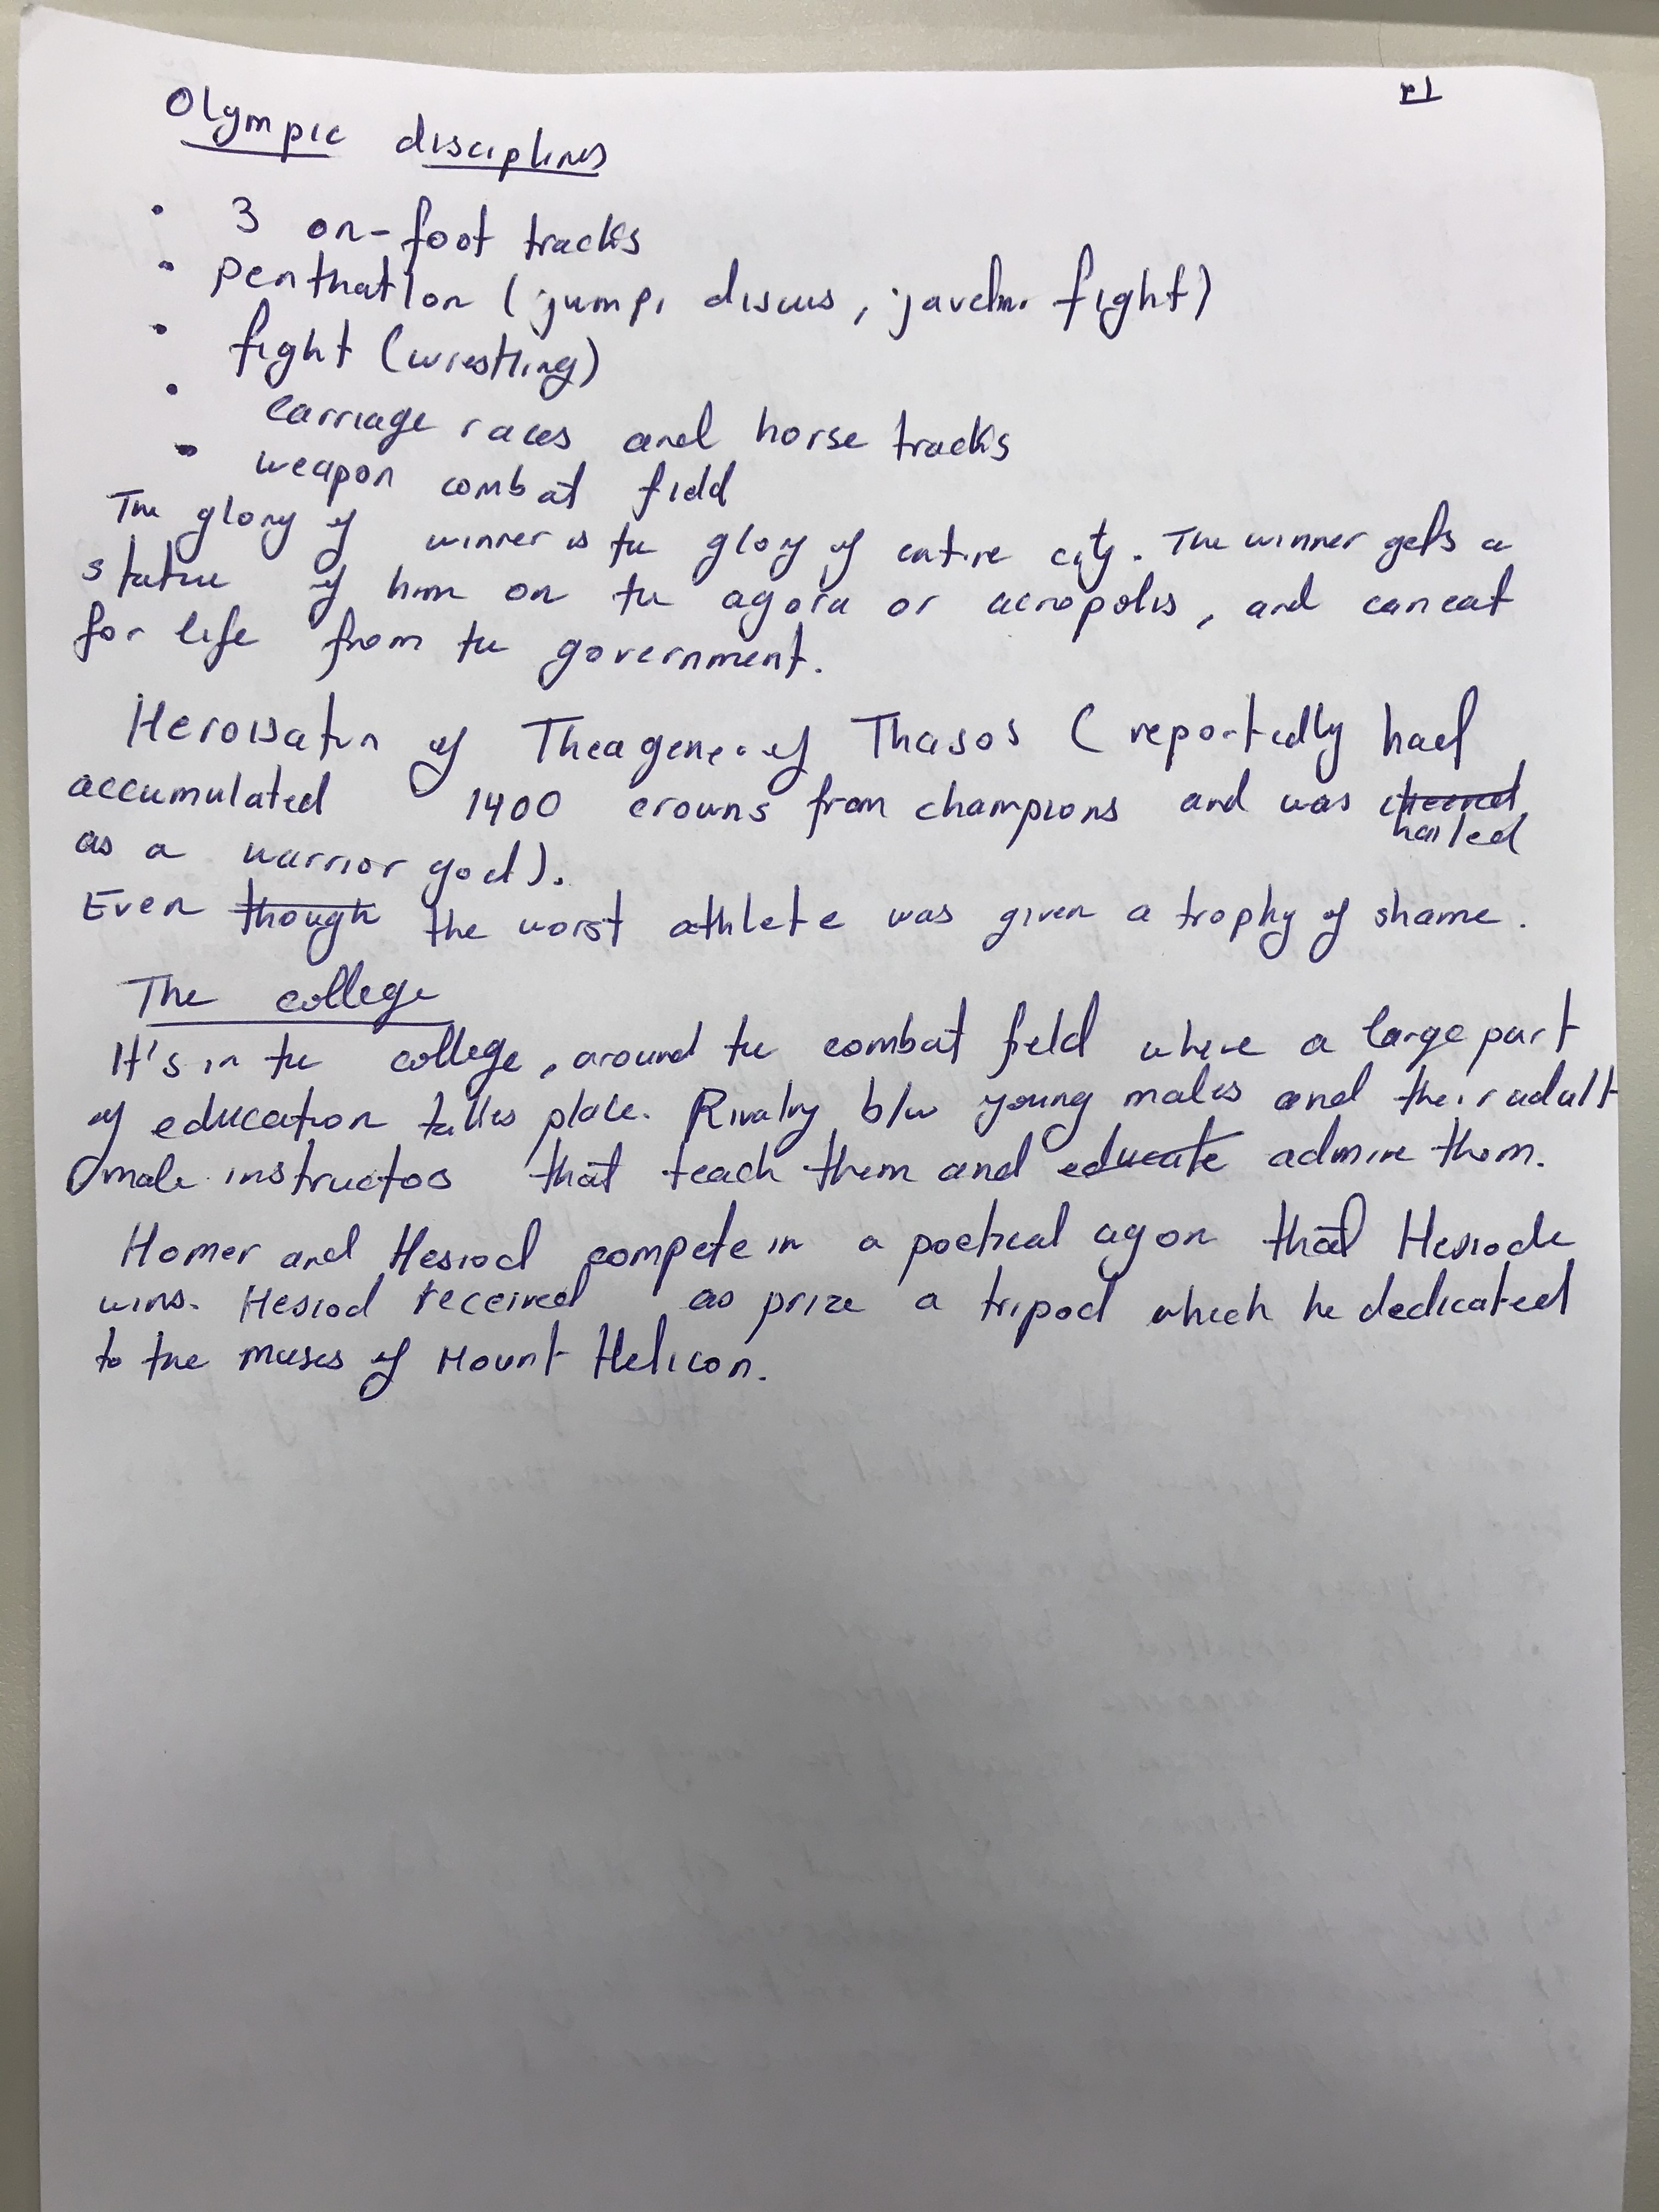 Olympic disciplines
• 3 on-foot tracks
• penthatlon (jump, discus, javelin. fight)
• fight (wrestling)
• carriage races and horse tracks
• weapon combat field
The glory of winner is the glory of entire city. The winner gets a
statue of him on the agora or acropolis, and can eat
for life from the government.
Heroisation of Theagenes of Thasos (reportedly had
accumulated 1400 crowns from champions and was
hailed
as a warrior god).
Even though the worst athlete was given a trophy of shame.
The college
It's in the college, around the combat field where a large part
of education takes place. Rivalry b/w young males and their adult
male instructos that teach them and educate admire them.
Homer and Hesiod compete in a poetical agon that Hesiode
wins. Hesiod received as prize a tripod which he dedicated
to the muses of Mount Helicon.